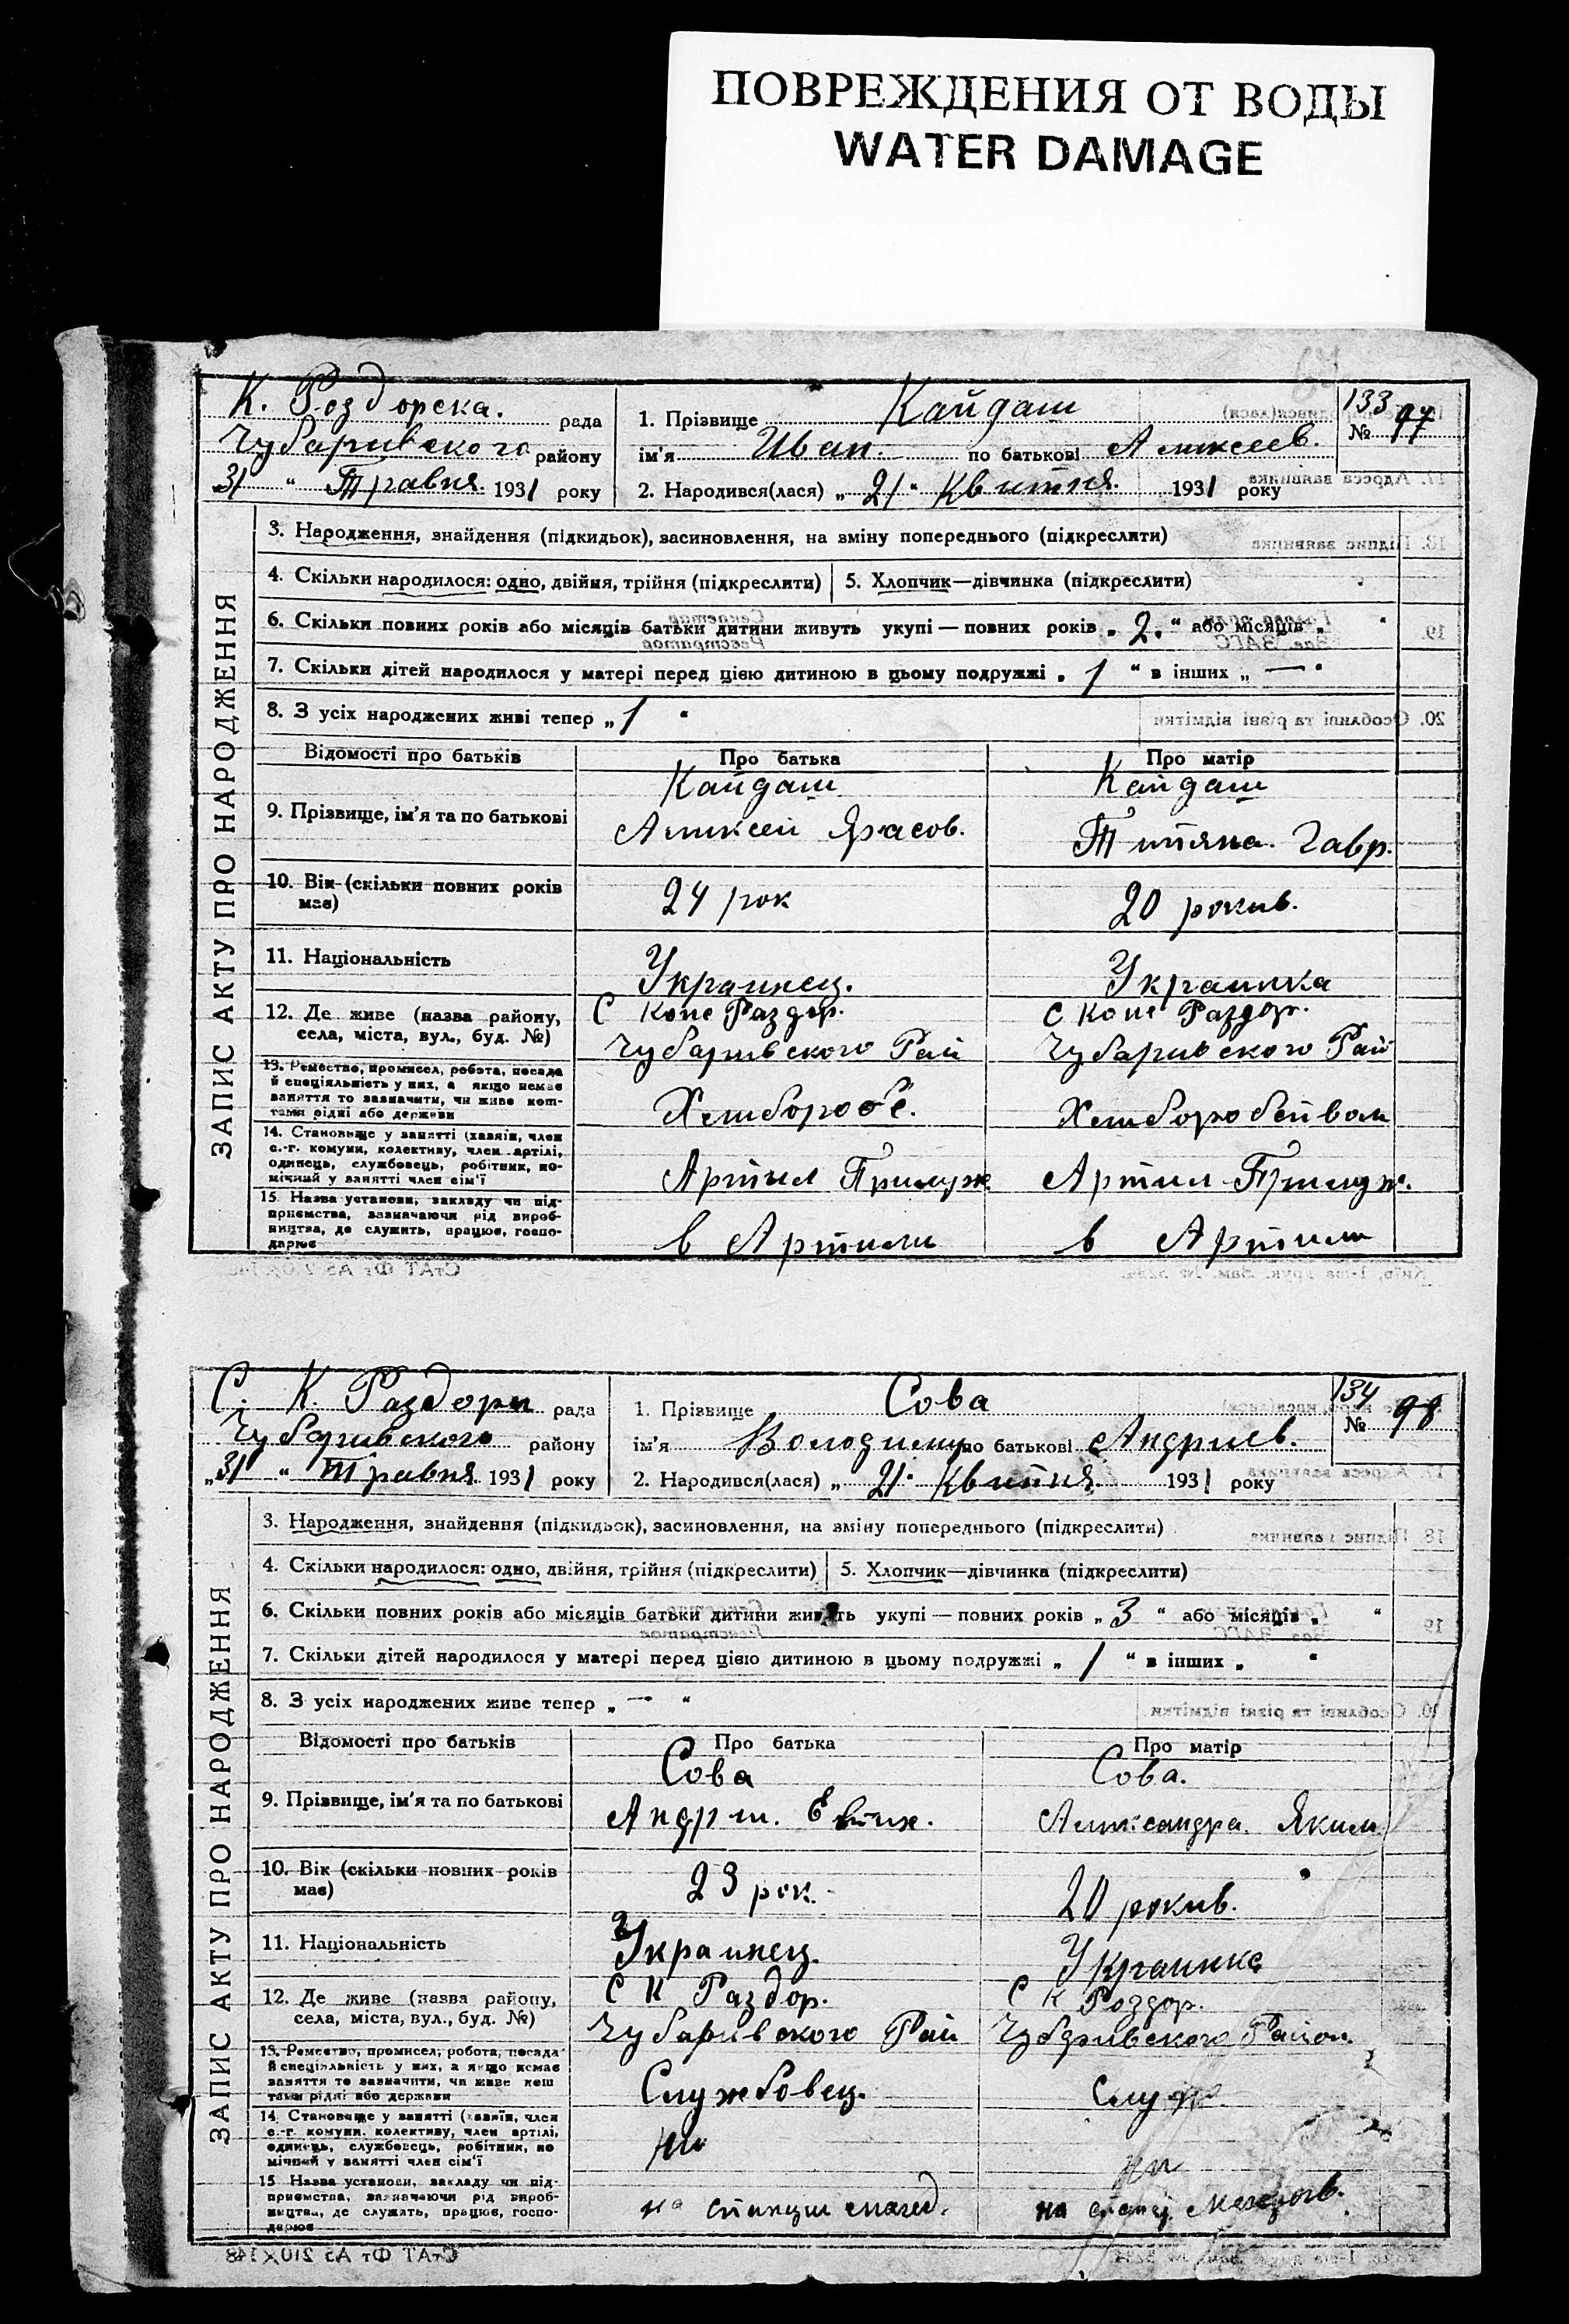 ПОВРЕЖДЕНИЯ ОТ ВОДЫ
WATER DAMAGE
К. Роздорска. рада
Чубаривского району
31 " Травня 1931 року
1. Прізвище Кайдаш
ім'я Иван. по батькові Алексеев.
2. Народився(лася) „ 21 " Квитня 1931 року
133
№ 97
3. Народження, знайдення (підкидьок), засиновлення, на зміну попереднього (підкреслити)
4. Скільки народилося: одно, двійня, трійня (підкреслити)
5. Хлопчик—дівчинка (підкреслити)
6. Скільки повних років або місяців батьки дитини живуть укупі — повних років „ 2. " або місяців „ "
7. Скільки дітей народилося у матері перед цією дитиною в цьому подружжі „ 1 " в інших „ — "
8. З усіх народжених живі тепер „ 1 "
ЗАПИС АКТУ ПРО НАРОДЖЕННЯ
Відомості про батьків Про батька Про матір
9. Прізвище, ім'я та по батькові
Кайдаш Кайдаш
Алексей Титяна. Гавр.
10. Вік (скільки повних років має)
24 рок 20 рокив.
11. Національність
Украинец. Украинка
12. Де живе (назва району, села, міста, вул., буд. №)
С Копе Раздор. С Копе Раздор.
Чубаривского Рай Чубаривского Рай
13. Ремество, промисел, робота, посада й спеціяльність у них, а якщо немає заняття то зазначити, чи живе коштами рідні або держави
Хлиборобс.
14. Становище у занятті (хазяїн, член с.-г. комуни, колективу, член артілі, одинець, службовець, робітник, помічний у занятті член сім'ї
Артил Артил
15. Назва установи, закладу чи підприємства, зазначаючи рід виробництва, де служить, працює, господарює
в Артили в Артили
С. К. Раздори рада
Чубаривского району
„ 31 " Травня 1931 року
1. Прізвище Сова
ім'я Володимир по батькові Андриев.
2. Народився(лася) „ 21. Квитня 1931 року
134
№ 98
3. Народження, знайдення (підкидьок), засиновлення, на зміну попереднього (підкреслити)
4. Скільки народилося: одно, двійня, трійня (підкреслити)
5. Хлопчик—дівчинка (підкреслити)
6. Скільки повних років або місяців батьки дитини живуть укупі — повних років „ 3 " або місяців „ "
7. Скільки дітей народилося у матері перед цією дитиною в цьому подружжі „ 1 " в інших „ "
8. З усіх народжених живе тепер „ — "
ЗАПИС АКТУ ПРО НАРОДЖЕННЯ
Відомості про батьків Про батька Про матір
9. Прізвище, ім'я та по батькові
Сова Сова.
Андрш. Евтих. Александра. Яким
10. Вік (скільки повних років має)
23 рок. 20 рокив.
11. Національність
Украинец. Украинка
12. Де живе (назва району, села, міста, вул., буд. №)
С К Раздор. С К Роздор.
Чубаривского Рай Чубаривского Район.
13. Ремество, промисел, робота, посада й спеціяльність у них, а якщо немає заняття то зазначити, чи живе кошtами рідні або держави
Службовец. Служ
14. Становище у занятті (хазяїн, член с.-г. комуни, колективу, член артілі, одинець, службовець, робітник, помічний у занятті член сім'ї
15. Назва установи, закладу чи підприємства, зазначаючи рід виробництва, де служить, працює, господарює
на на